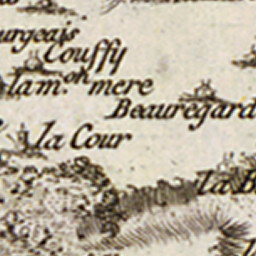 urgeais
Couffy
la m.on mere
Beauregard
la Cour
la B